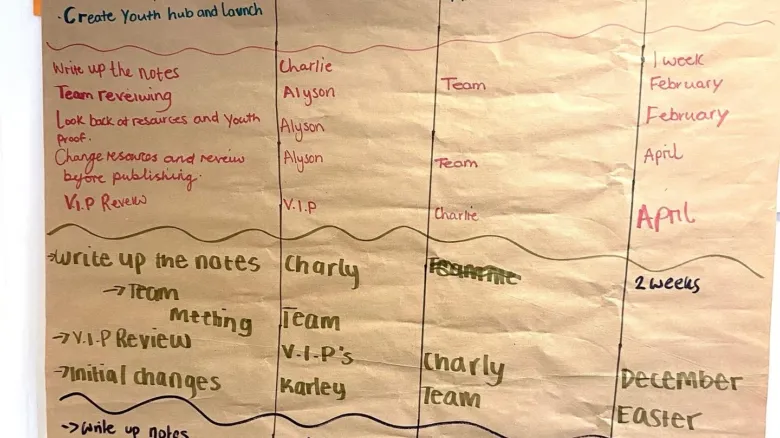 · Create Youth hub and launch
Write up the notes Charlie 1 week
Team reveiwing Alyson Team February
Look back at resources and Youth Alyson February
Proof.
Change resources and review Alyson Team April
before publishing.
V.I.P Review V.I.P Charlie April
→Write up the notes Charly 2 weeks
→Team
Meeting Team
→V.I.P Review V.I.P's Charly
→Initial changes Karley Team December
Easter
→Write up notes